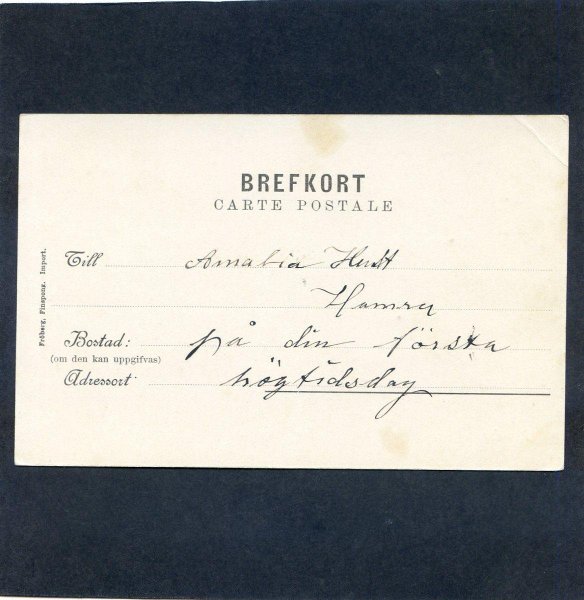 BREFKORT
CARTE POSTALE
Till Amalia Hult
Hamra
Bostad: på din första
(om den kan uppgifvas)
Adressort högtidsdag
Fröberg, Finspong. Import.